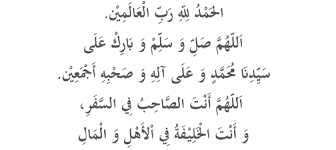 الْحَمْدُ لِلّٰهِ رَبِّ الْعَالَمِيْنِ.
اَللّٰهُمَّ صَلِّ وَ سَلِّمْ وَ بَارِكْ عَلَى
سَيِّدِنَا مُحَمَّدٍ وَ عَلَى آلِهِ وَ صَحْبِهِ أَجْمَعِيْنَ.
اَللّٰهُمَّ أَنْتَ الصَّاحِبُ فِي السَّفَرِ،
وَ أَنْتَ الْخَلِيْفَةُ فِي اْلأَهْلِ وَ الْمَالِ